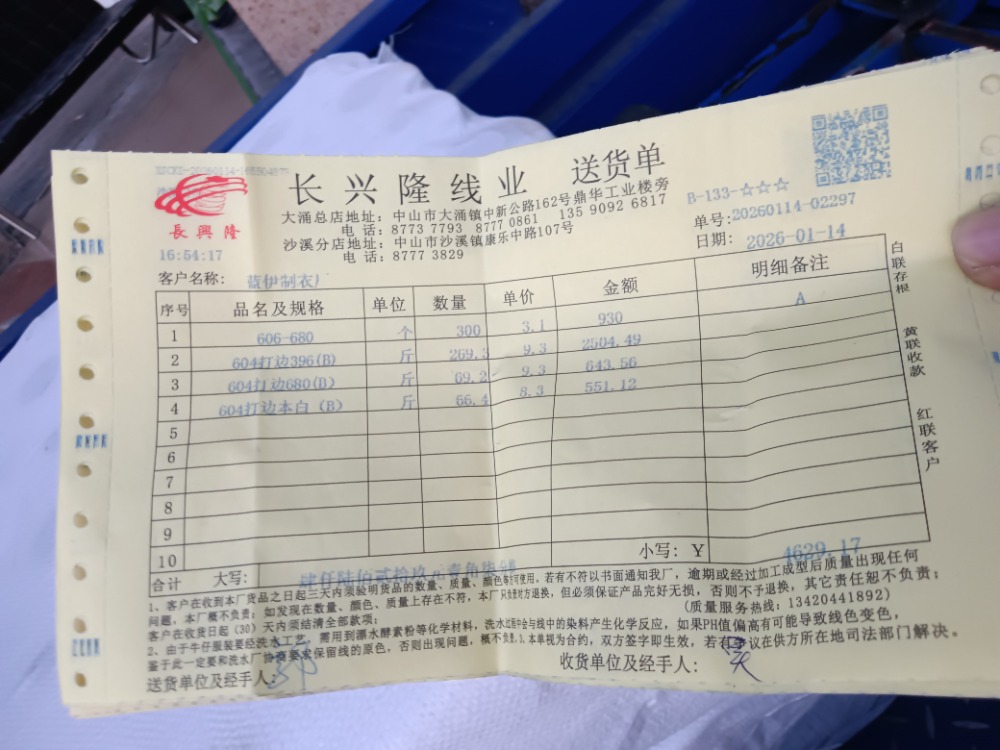 长兴隆线业 送货单
長興隆
大涌总店地址：中山市大涌镇中新公路162号鼎华工业楼旁
电话：8773 7793 8777 0861 135 9092 6817
沙溪分店地址：中山市沙溪镇康乐中路107号
电话：8777 3829
B-133-☆☆☆
单号:20260114-02297
日期：2026-01-14
16:54:17
客户名称：蓝伊制衣厂
序号 品名及规格 单位 数量 单价 金额 明细备注
1 606-680 个 300 3.1 930 A
2 604打边396(B) 斤 269.3 9.3 2504.49
3 604打边680(B) 斤 69.2 9.3 643.56
4 604打边本白（B） 斤 66.4 8.3 551.12
5
6
7
8
9
10
合计 大写：肆仟陆佰贰拾玖元壹角柒分 小写：Y 4629.17
1、客户在收到本厂货品之日起三天内须验明货品的数量、质量、颜色等可使用，若有不符以书面通知我厂，逾期或经过加工成型后质量出现任何
问题，本厂概不负责；如发现在数量、颜色、质量上存在不符，本厂只负责对方退换，但必须保证产品完好无损，否则不予退换，其它责任恕不负责；
客户在收货日起（30）天内须结清全部款项； （质量服务热线：13420441892）
2、由于牛仔服装要经洗水工艺，需用到漂水酵素粉等化学材料，洗水过程中会与线中的染料产生化学反应，如果PH值偏高有可能导致线色变色，
鉴于此一定要和洗水厂协商要发保留线的原色，否则出现问题，概不负责。3、本单视为合约，双方签字即生效，若有争议在供方所在地司法部门解决。
送货单位及经手人： 收货单位及经手人：
白联存根
黄联收款
红联客户